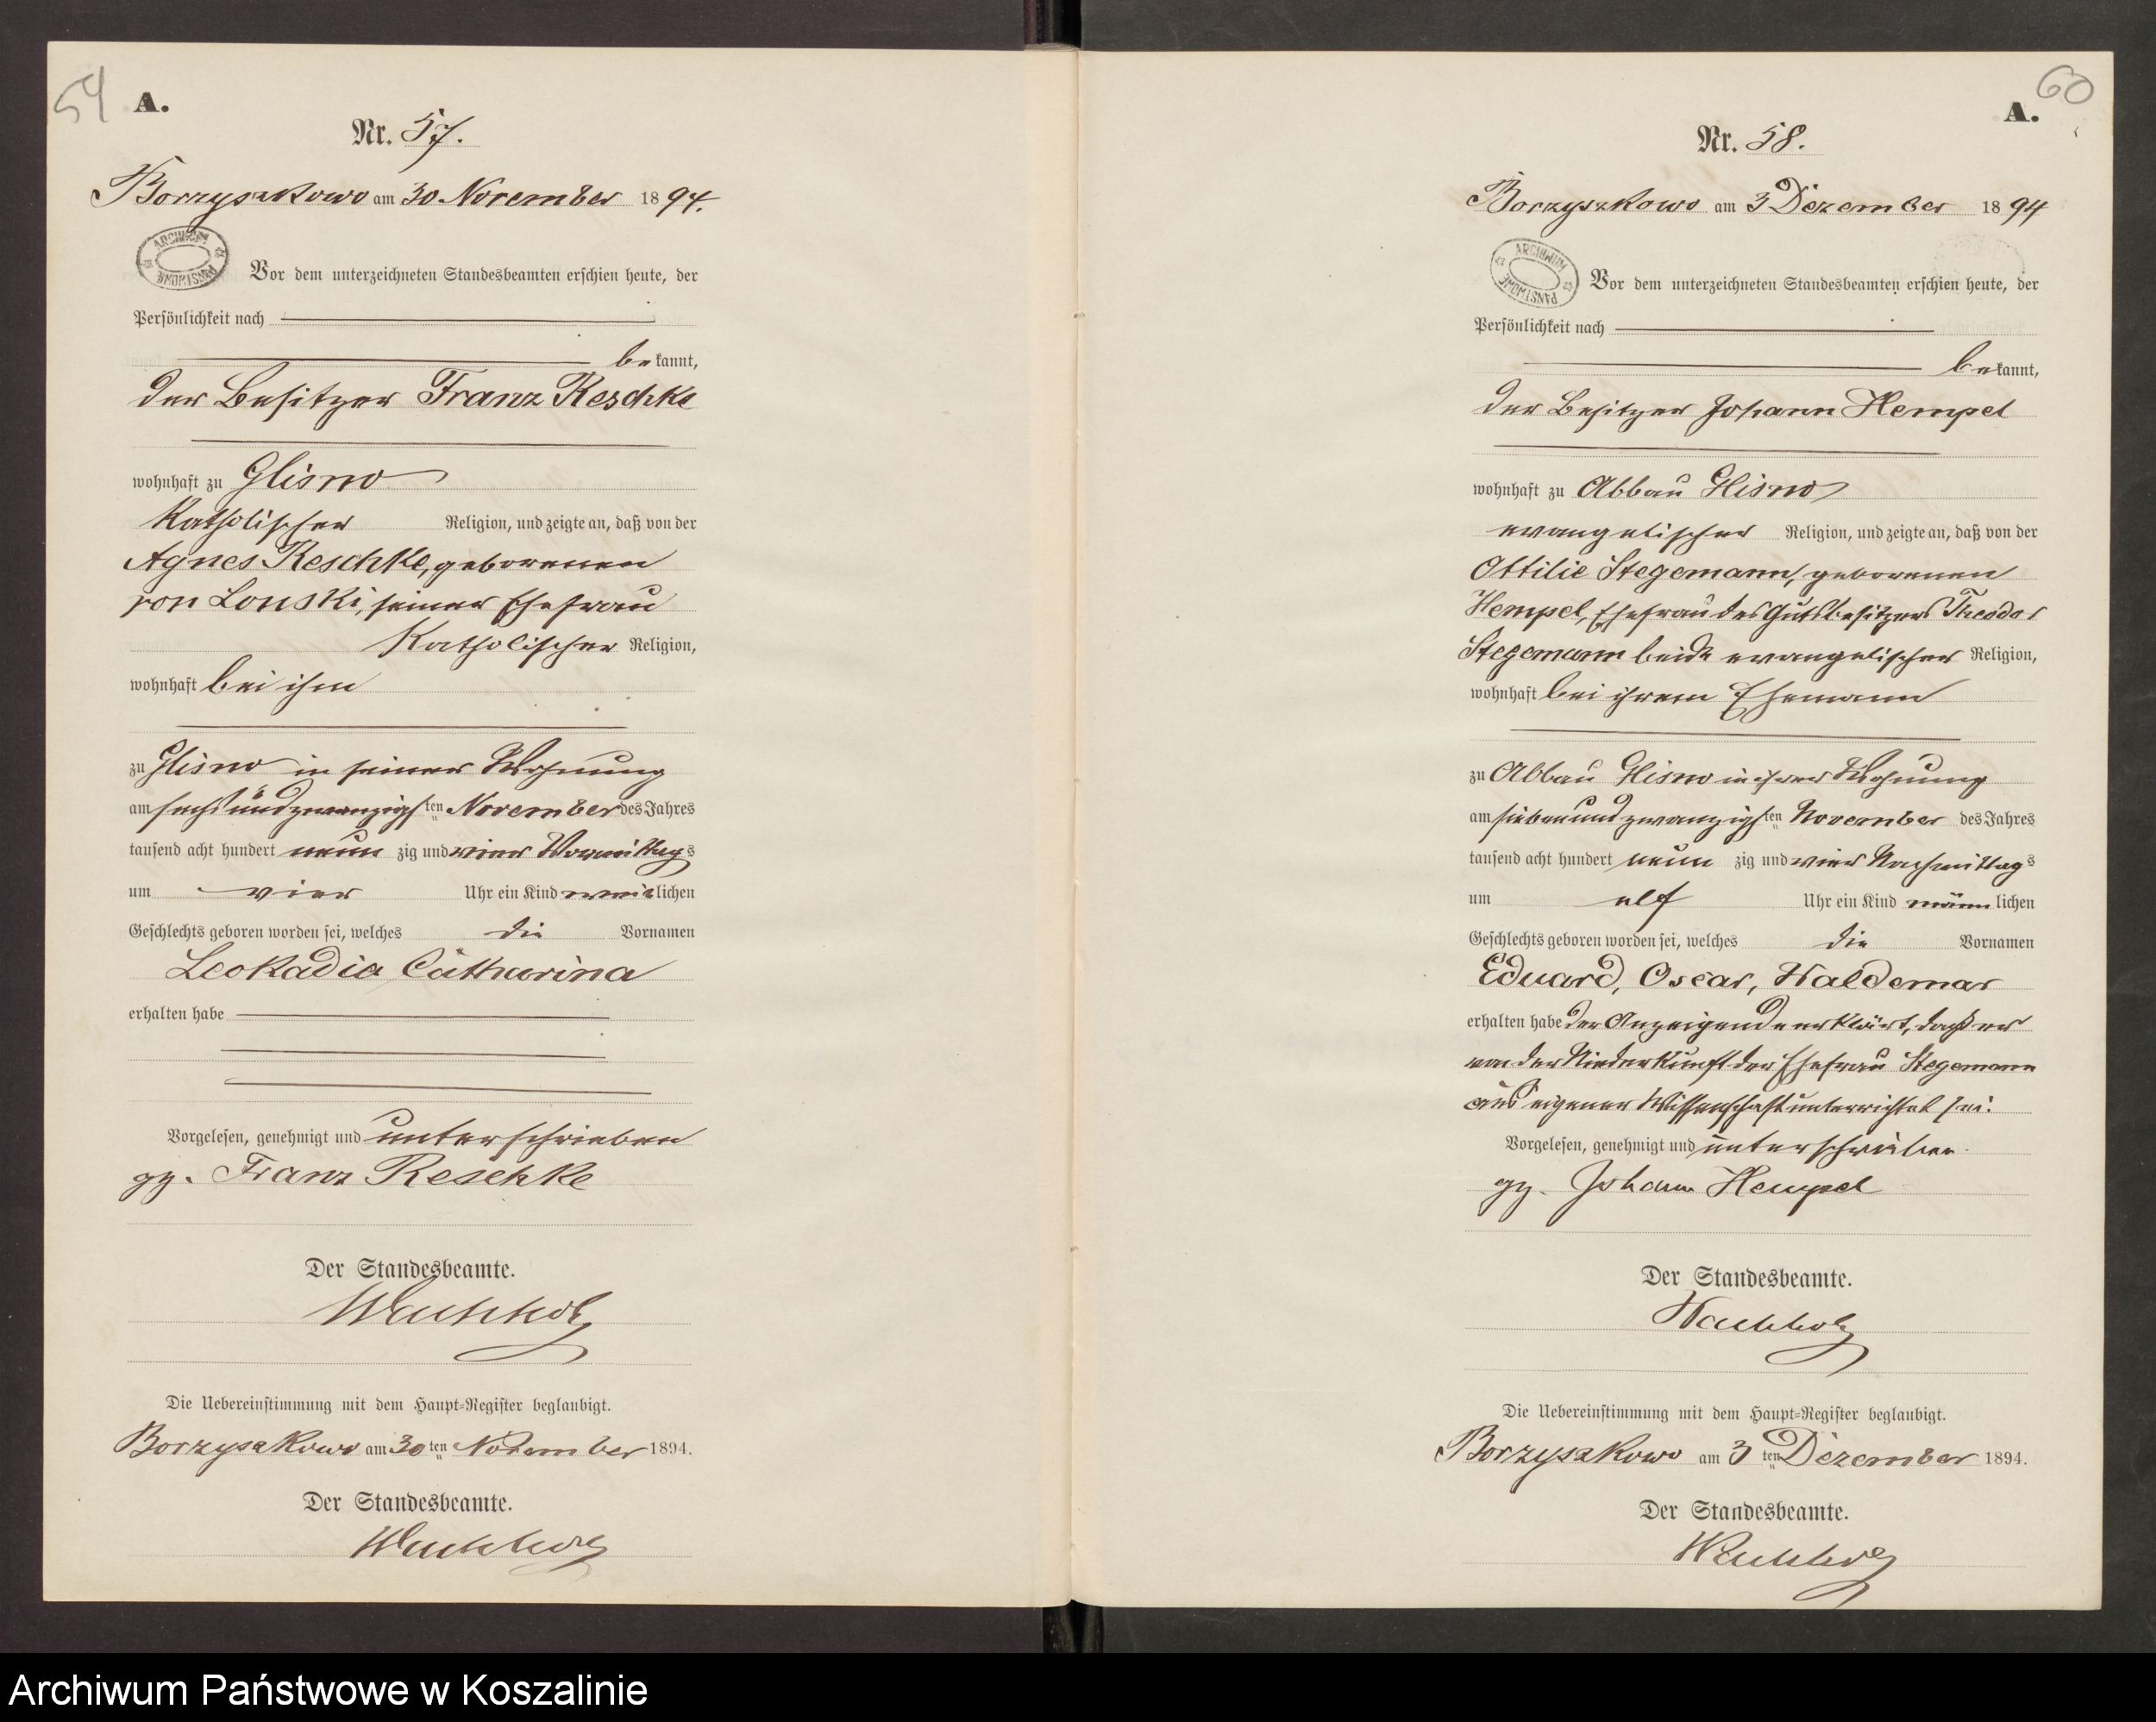 54
A.
Nr. 57.
Borzyszkowo am 30 November 1894.
ARCHIWUM PAŃSTWOWE
Vor dem unterzeichneten Standesbeamten erschien heute, der
Persönlichkeit nach
bekannt,
der Besitzer Franz Reschke
wohnhaft zu Glisno
Katholischer Religion, und zeigte an, daß von der
Agnes Reschke, geborenen
von Lonski, seiner Ehefrau
Katholischer Religion,
wohnhaft bei ihm
zu Glisno in seiner Wohnung
am sechsundzwanzigsten November des Jahres
tausend acht hundert neunzig und vier Vormittags
um vier Uhr ein Kind weiblichen
Geschlechts geboren worden sei, welches die Vornamen
Leokadia Catharina
erhalten habe
Vorgelesen, genehmigt und unterschrieben
gz. Franz Reschke
Der Standesbeamte.
Wachholz
Die Uebereinstimmung mit dem Haupt-Register beglaubigt.
Borzyszkowo am 30ten November 1894.
Der Standesbeamte.
Wachholz
60
A.
Nr. 58.
Borzyszkowo am 3 Dezember 1894
ARCHIWUM PAŃSTWOWE
Vor dem unterzeichneten Standesbeamten erschien heute, der
Persönlichkeit nach
bekannt,
der Besitzer Johann Hempel
wohnhaft zu Abbau Glisno
evangelischer Religion, und zeigte an, daß von der
Ottilie Stegemann, geborenen
Hempel, Ehefrau des Gutsbesitzers Theodor
Stegemann beide evangelischer Religion,
wohnhaft bei ihrem Ehemann
zu Abbau Glisno in ihrer Wohnung
am siebenundzwanzigsten November des Jahres
tausend acht hundert neunzig und vier Nachmittags
um elf Uhr ein Kind männlichen
Geschlechts geboren worden sei, welches die Vornamen
Eduard, Oscar, Waldemar
erhalten habe der Anzeigende erklärt, daß er
von der Niederkunft der Ehefrau Stegemann
aus eigener Wissenschaft unterrichtet sei.
Vorgelesen, genehmigt und unterschrieben.
gz. Johann Hempel
Der Standesbeamte.
Wachholz
Die Uebereinstimmung mit dem Haupt-Register beglaubigt.
Borzyszkowo am 3ten Dezember 1894.
Der Standesbeamte.
Wachholz
Archiwum Państwowe w Koszalinie